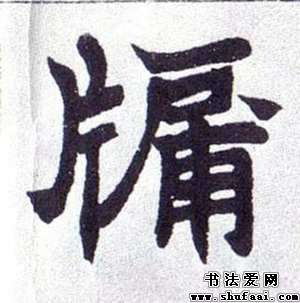 牖
书法爱网
www.shufaai.com